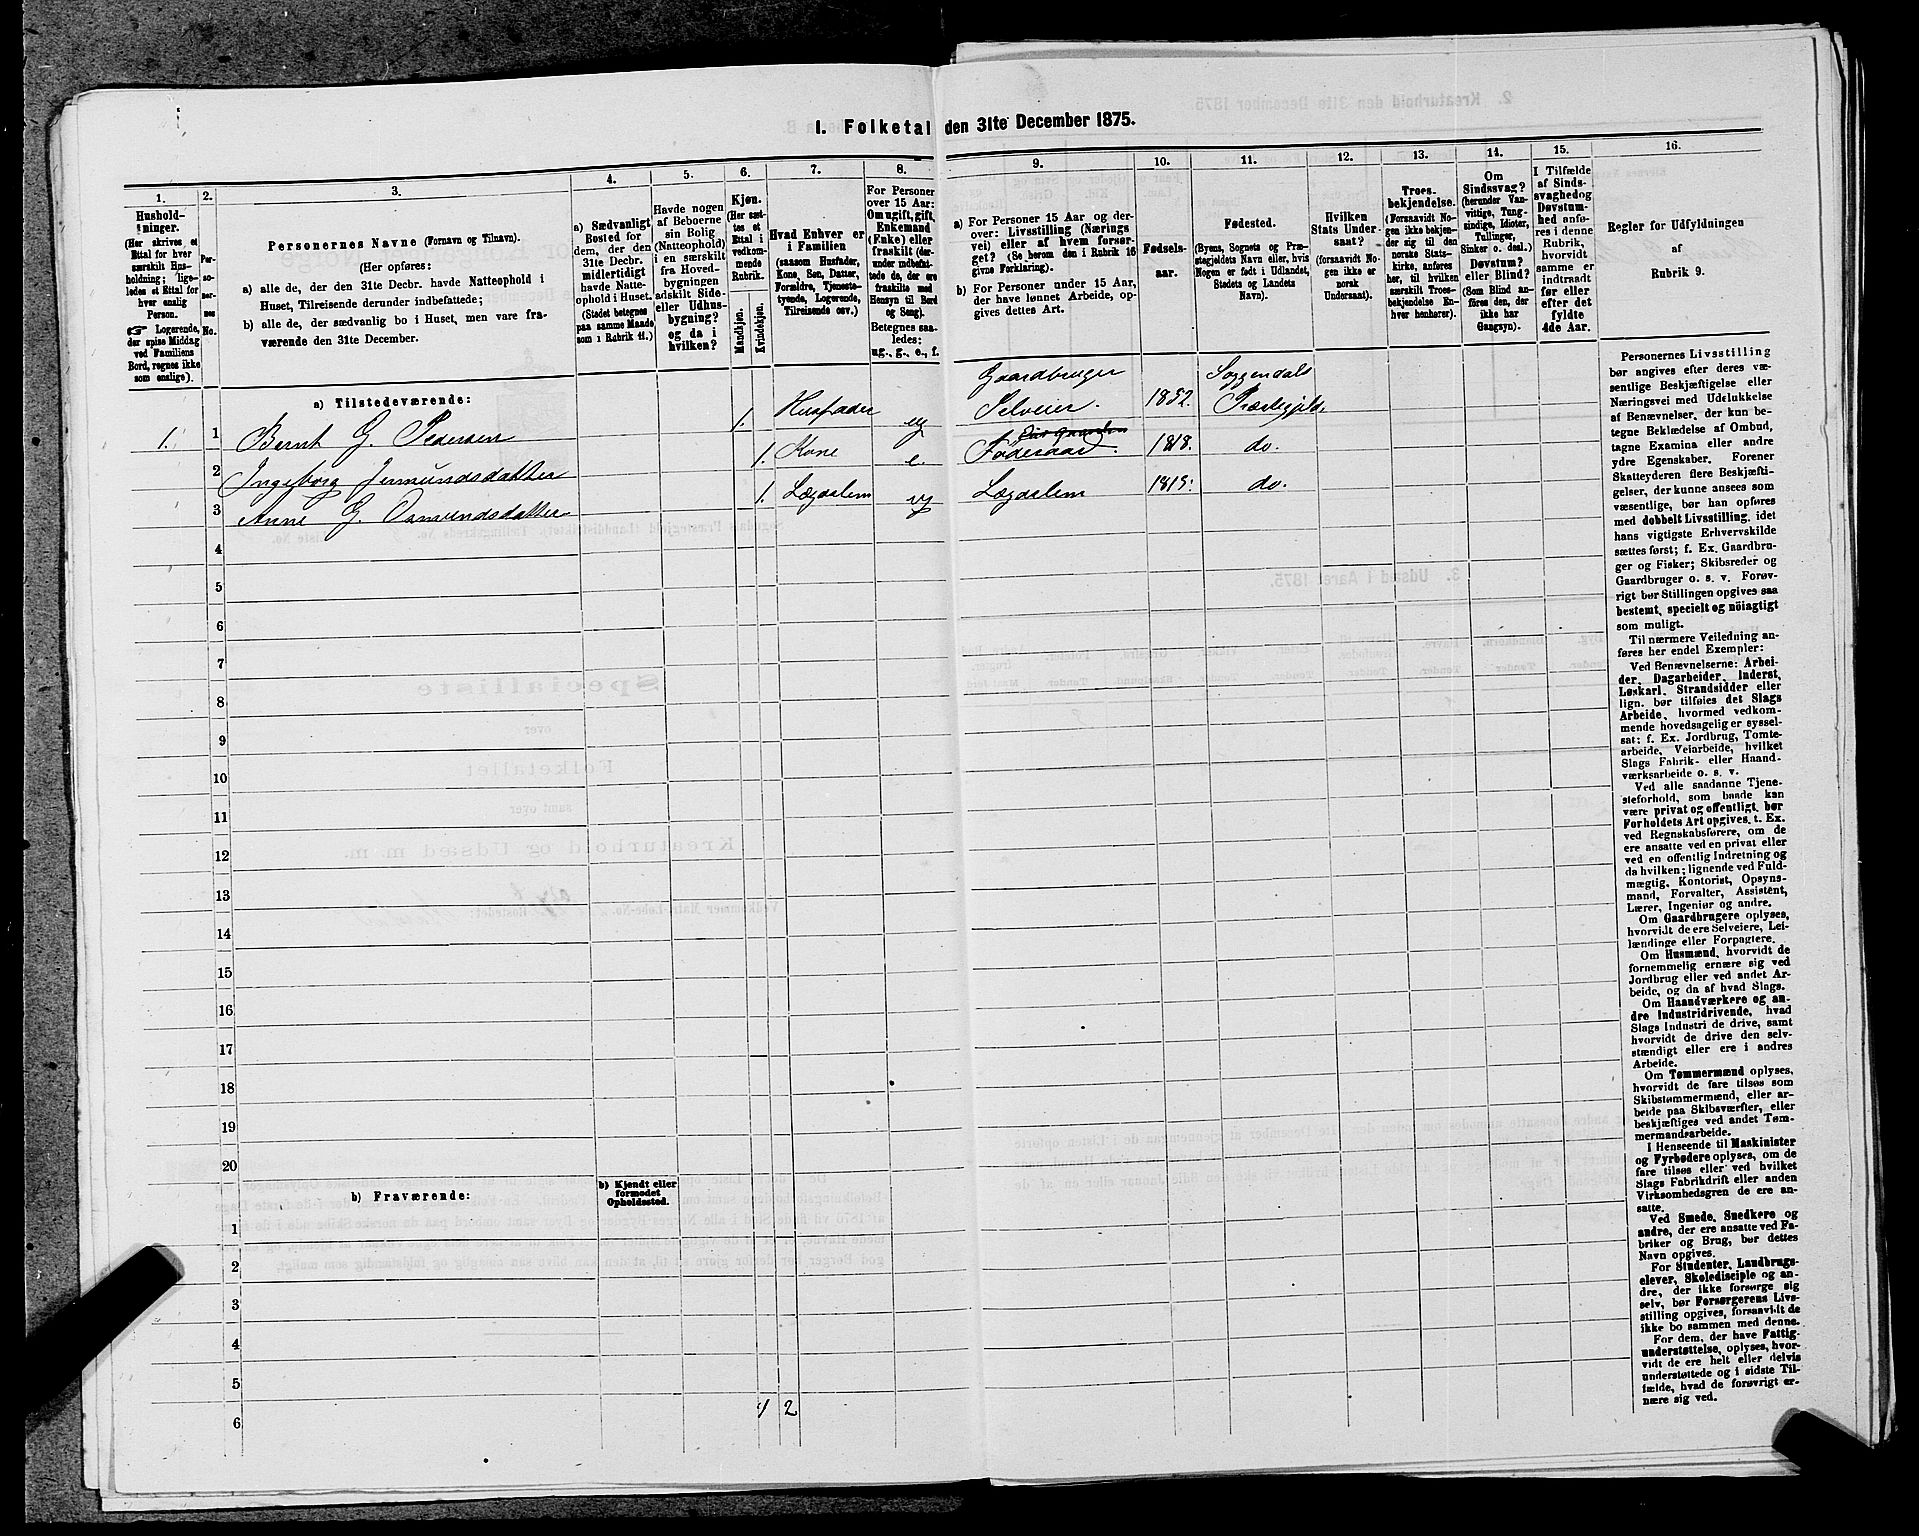 1. Folketal den 31te December 1875.
1.
2.
3.
4.
5.
6.
7.
8.
9.
10.
11.
12.
13.
14.
15.
16.
Hushold-
ninger.
(Her skrives et
Ettal for hver
særskilt Hus-
holdning; lige-
ledes et Ettal for
hver enslig
Person.
☞ Logerende,
der spise Middag
ved Familiens
Bord, regnes ikke
som enslige).
Per-
so-
ner-
nes
No.
Personernes Navne (Fornavn og Tilnavn).
(Her opføres:
a) alle de, der den 31te Decbr. havde Natteophold i
Huset, Tilreisende derunder indbefattede;
b) alle de, der sædvanlig bo i Huset, men vare fra-
værende den 31te December.
a) Sædvanligt
Bosted for
dem, der den
31te Decbr.
midlertidigt
havde Natte-
ophold i Huset.
(Stedet betegnes
paa samme Maade
som i Rubrik 11.)
Havde nogen
af Beboerne
sin Bolig
(Natteophold)
i en særskilt
fra Hoved-
bygningen
adskilt Side-
eller Udhus-
bygning?
og da i
hvilken?
Kjøn.
(Her sæt-
tes et
Ettal i
vedkom-
mende
Rubrik.
Mandkjøn.
Kvindekjøn.
Hvad Enhver er
i Familien
(saasom Husfader,
Kone, Søn, Datter,
Forældre, Tjeneste-
tyende, Logerende,
Tilreisende osv.)
For Personer
over 15 Aar:
Om ugift, gift,
Enkemand
(Enke) eller
fraskilt (der-
under indbefat-
tede de, der ere
fraskilte med
Hensyn til Bord
og Seng).
Betegnes saa-
ledes:
ug., g., e., f.
a) For Personer 15 Aar og der-
over: Livsstilling (Nærings
vei) eller af hvem forsør-
get? (Se herom den i Rubrik 16
givne Forklaring).
b) For Personer under 15 Aar,
der have lønnet Arbeide, op-
gives dettes Art.
Fødsels-
aar.
Fødested.
(Byens, Sognets og Præ-
stegjeldets Navn eller, hvis
Nogen er født i Udlandet,
Stedets og Landets
Navn).
Hvilken
Stats Under-
saat?
(forsaavidt No-
gen ikke er
norsk
Undersaat).
Troes-
bekjendelse.
(Forsaavidt No-
gen ikke bekjen-
der sig til den
norske Stats-
kirke, anføres
her, til hvilken
særskilt Troes-
bekjendelse En-
hver henhører).
Om
Sindssvag?
(herunder Van-
vittige, Tung-
sindige, Idioter,
Tullinger,
Sinker o. desl.)
Døvstum?
eller Blind?
(Som Blind an-
føres den, der
ikke har
Gangsyn).
I Tilfælde
af Sinds-
svaghed og
Døvstum-
hed anfø-
res i denne
Rubrik,
hvorvidt
samme er
indtraadt
før eller
efter det
fyldte
4de Aar.
Regler for Udfyldningen
af
Rubrik 9.
a) Tilstedeværende:
1. 1 Bernt G. Pedersen 1. Husfader ug Gaardbruger Selveier. 1852. Soggendals Præstegjeld.
2 Ingeborg Jermundsdatter 1. Kone e. Føderaad. 1818. do.
3 Anne G. Osmundsdatter 1. Lægdslem ug Lægdslem 1815. do.
4
5
6
7
8
9
10
11
12
13
14
15
16
17
18
19
20
b) Fraværende:
b) Kjendt eller
formodet
Opholdssted.
1
2
3
4
5
6
1 2
Personernes Livsstilling
bør angives efter deres væ-
sentlige Beskjæftigelse eller
Næringsvei med Udelukkelse
af Benævnelser, der kun be-
tegne Beklædelse af Ombud,
tagne Examina eller andre
ydre Egenskaber. Forener
Skatteyderen flere Beskjæfti-
gelser, der kunne ansees som
væsentlige, bør han opføres
med dobbelt Livsstilling, idet
hans vigtigste Erhvervskilde
sættes først; f. Ex. Gaardbru-
ger og Fisker; Skibsreder og
Gaardbruger o. s. v. Forøv-
rigt bør Stillingen opgives saa
bestemt, specielt og nöiagtigt
som muligt.
Til nærmere Veiledning an-
føres her endel Exempler:
Ved Benævnelserne: Arbei-
der, Dagarbeider, Inderst,
Løskarl, Strandsidder eller
lign. bør tilføies det Slags
Arbeide, hvormed vedkom-
mende hovedsagelig er syssel-
sat; f. Ex. Jordbrug, Tomte-
arbeide, Veiarbeide, hvilket
Slags Fabrik- eller Haand-
værksarbeide o. s. v.
Ved alle saadanne Tjene-
steforhold, som baade kan
være privat og offentligt, bør
Forholdets Art opgives, t. Ex.
ved Regnskabsførere, om de
ere ansatte ved en privat eller
ved en offentlig Indretning og
da hvilken; lignende ved Fuld-
mægtig, Kontorist, Opsyns-
mand, Forvalter, Assistent,
Lærer, Ingeniør og andre.
Om Gaardbrugere oplyses,
hvorvidt de ere Selveiere, Lei-
lændinge eller Forpagtere.
Om Husmænd, hvorvidt de
fornemmelig ernære sig ved
Jordbrug eller ved andet Ar-
beide, og da af hvad Slags.
Om Haandværkere og an-
dre Industridrivende, hvad
Slags Industri de drive, samt
hvorvidt de drive den selv-
stændigt eller ere i andres
Arbeide.
Om Tømmermænd oplyses,
hvorvidt de fare tilsøs som
Skibstømmermænd, eller ar-
beide paa Skibsværfter, eller
beskjæftiges ved andet Tøm-
mermandsarbeide.
I Henseende til Maskinister
og Fyrbødere oplyses, om de
fare tilsøs eller ved hvilket
Slags Fabrikdrift eller anden
Virksomhedsgren de ere an-
satte.
Ved Smede, Snedkere og
andre, der ere ansatte ved Fa-
briker og Brug, bør dettes
Navn opgives.
For Studenter, Landbrugs-
elever, Skoledisciple og an-
dre, der ikke forsørge sig
selv, bør Forsørgerens Livs-
stilling opgives, forsaavidt de
ikke bo sammen med denne.
For dem, der have Fattig-
understøttelse, oplyses, hvor-
vidt de ere helt eller delvis
understøttede og i sidste Til-
fælde, hvad de forøvrigt er-
nære sig ved.